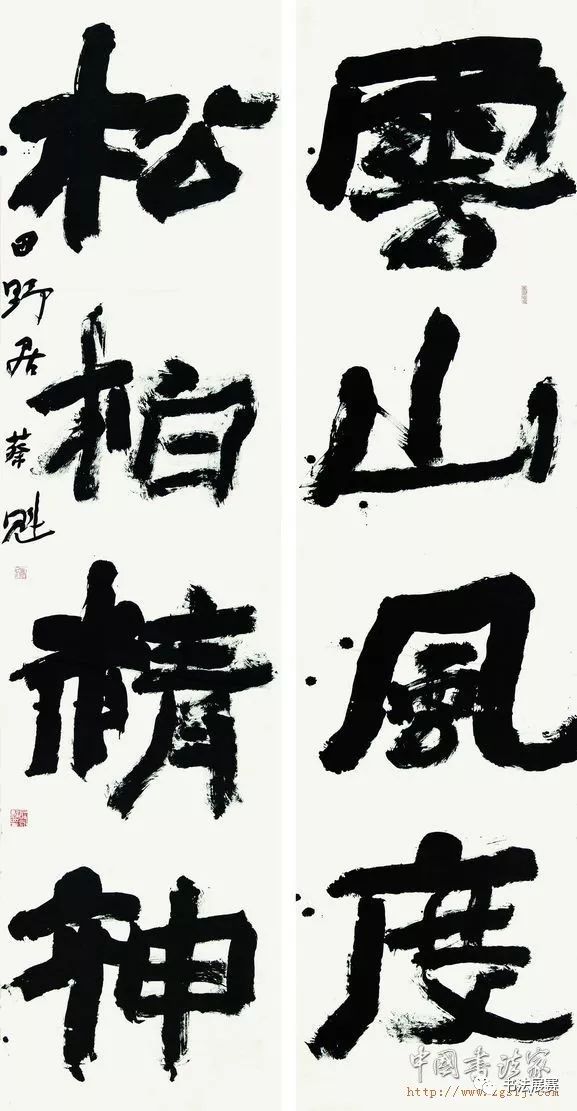 雲山風度
松柏精神
田野居 蔡魁
中國書法家
http://www.zgsfj.com
书法展赛